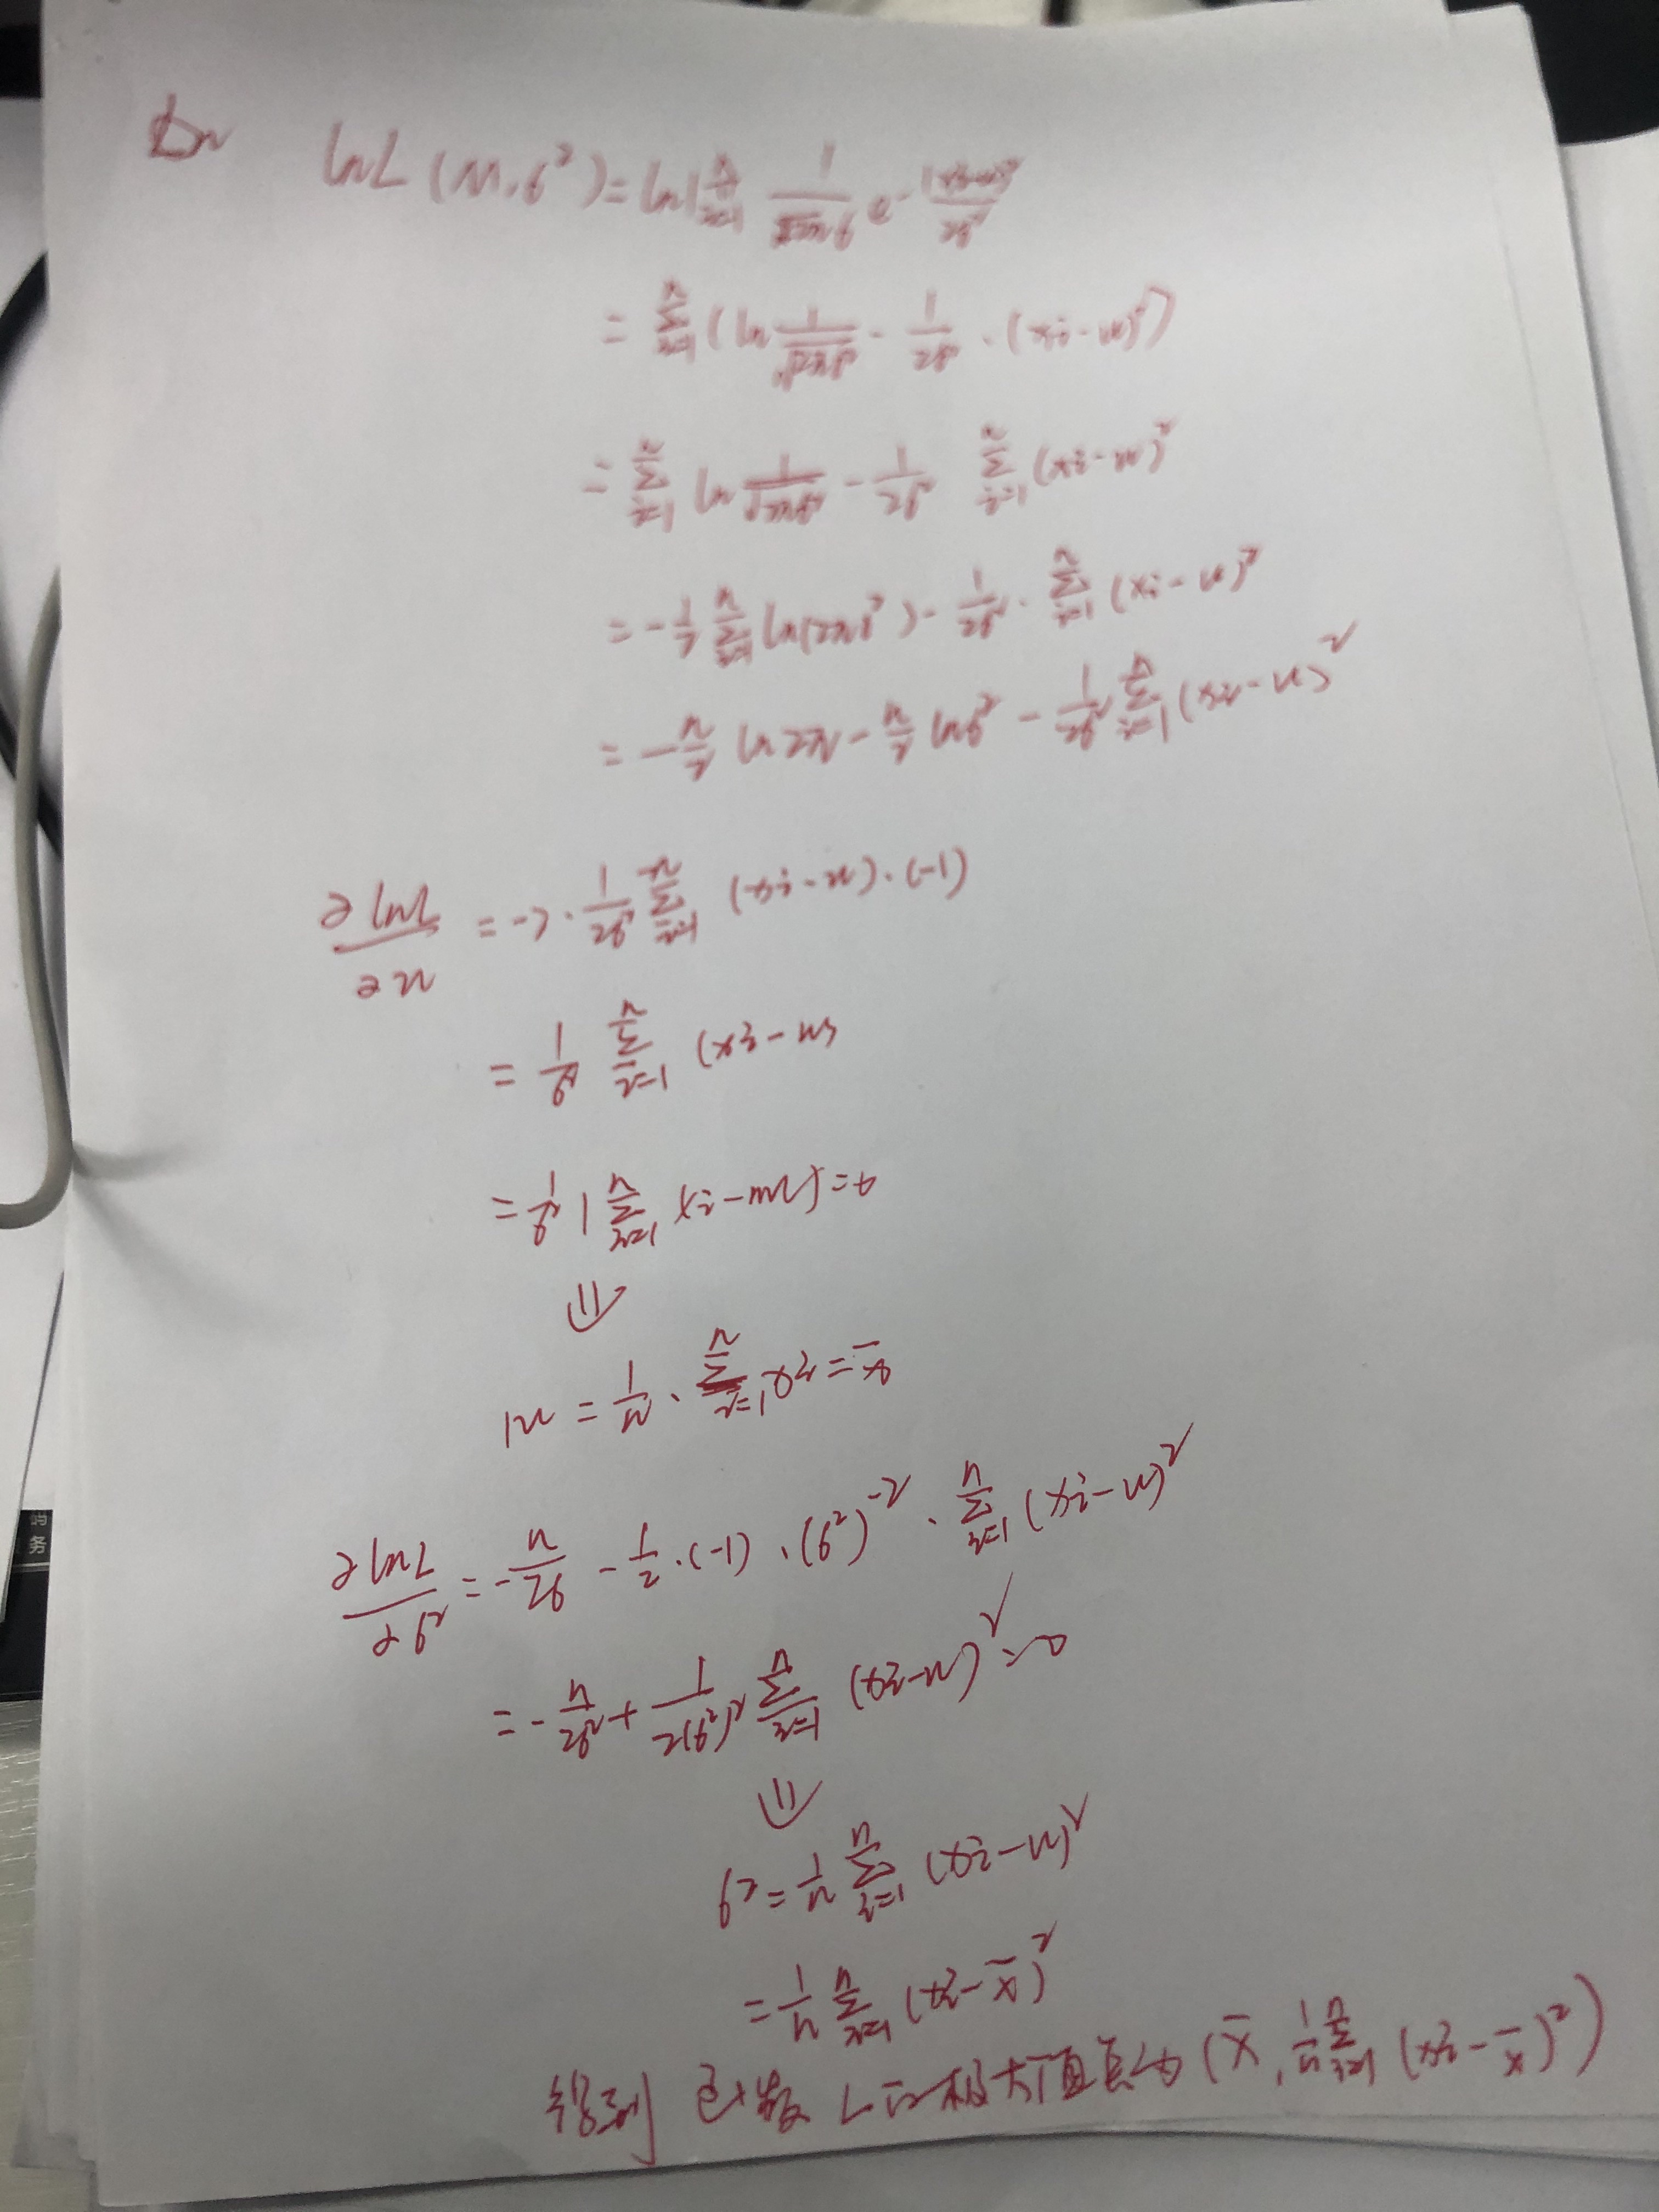 lnL(μ,σ²)=ln∏_{i=1}^{n} \frac{1}{\sqrt{2π}σ} e^{-\frac{(xi-μ)²}{2σ²}}
=∑_{i=1}^{n}(ln\frac{1}{\sqrt{2πσ²}}-\frac{1}{2σ²}·(xi-μ)²)
=∑_{i=1}^{n} ln\frac{1}{\sqrt{2πσ²}}-\frac{1}{2σ²} ∑_{i=1}^{n}(xi-μ)²
=-\frac{1}{2}∑_{i=1}^{n}ln(2πσ²)-\frac{1}{2σ²}·∑_{i=1}^{n}(xi-μ)²
=-\frac{n}{2}ln2π-\frac{n}{2}lnσ²-\frac{1}{2σ²}∑_{i=1}^{n}(xi-μ)²
\frac{∂lnL}{∂μ}=-2·\frac{1}{2σ²}∑_{i=1}^{n}(xi-μ)·(-1)
=\frac{1}{σ²}∑_{i=1}^{n}(xi-μ)
=\frac{1}{σ²}(∑_{i=1}^{n}xi-nμ)=0
⇓
μ=\frac{1}{n}·∑_{i=1}^{n}xi=\bar{x}
\frac{∂lnL}{∂σ²}=-\frac{n}{2σ}-\frac{1}{2}·(-1)·(σ²)^{-2}·∑_{i=1}^{n}(xi-μ)²
=-\frac{n}{2σ²}+\frac{1}{2(σ²)²}∑_{i=1}^{n}(xi-μ)²=0
⇓
σ²=\frac{1}{n}∑_{i=1}^{n}(xi-μ)²
=\frac{1}{n}∑_{i=1}^{n}(xi-\bar{x})²
得到 函数 L的极大值点为(\bar{x},\frac{1}{n}∑_{i=1}^{n}(xi-\bar{x})²)
码
务